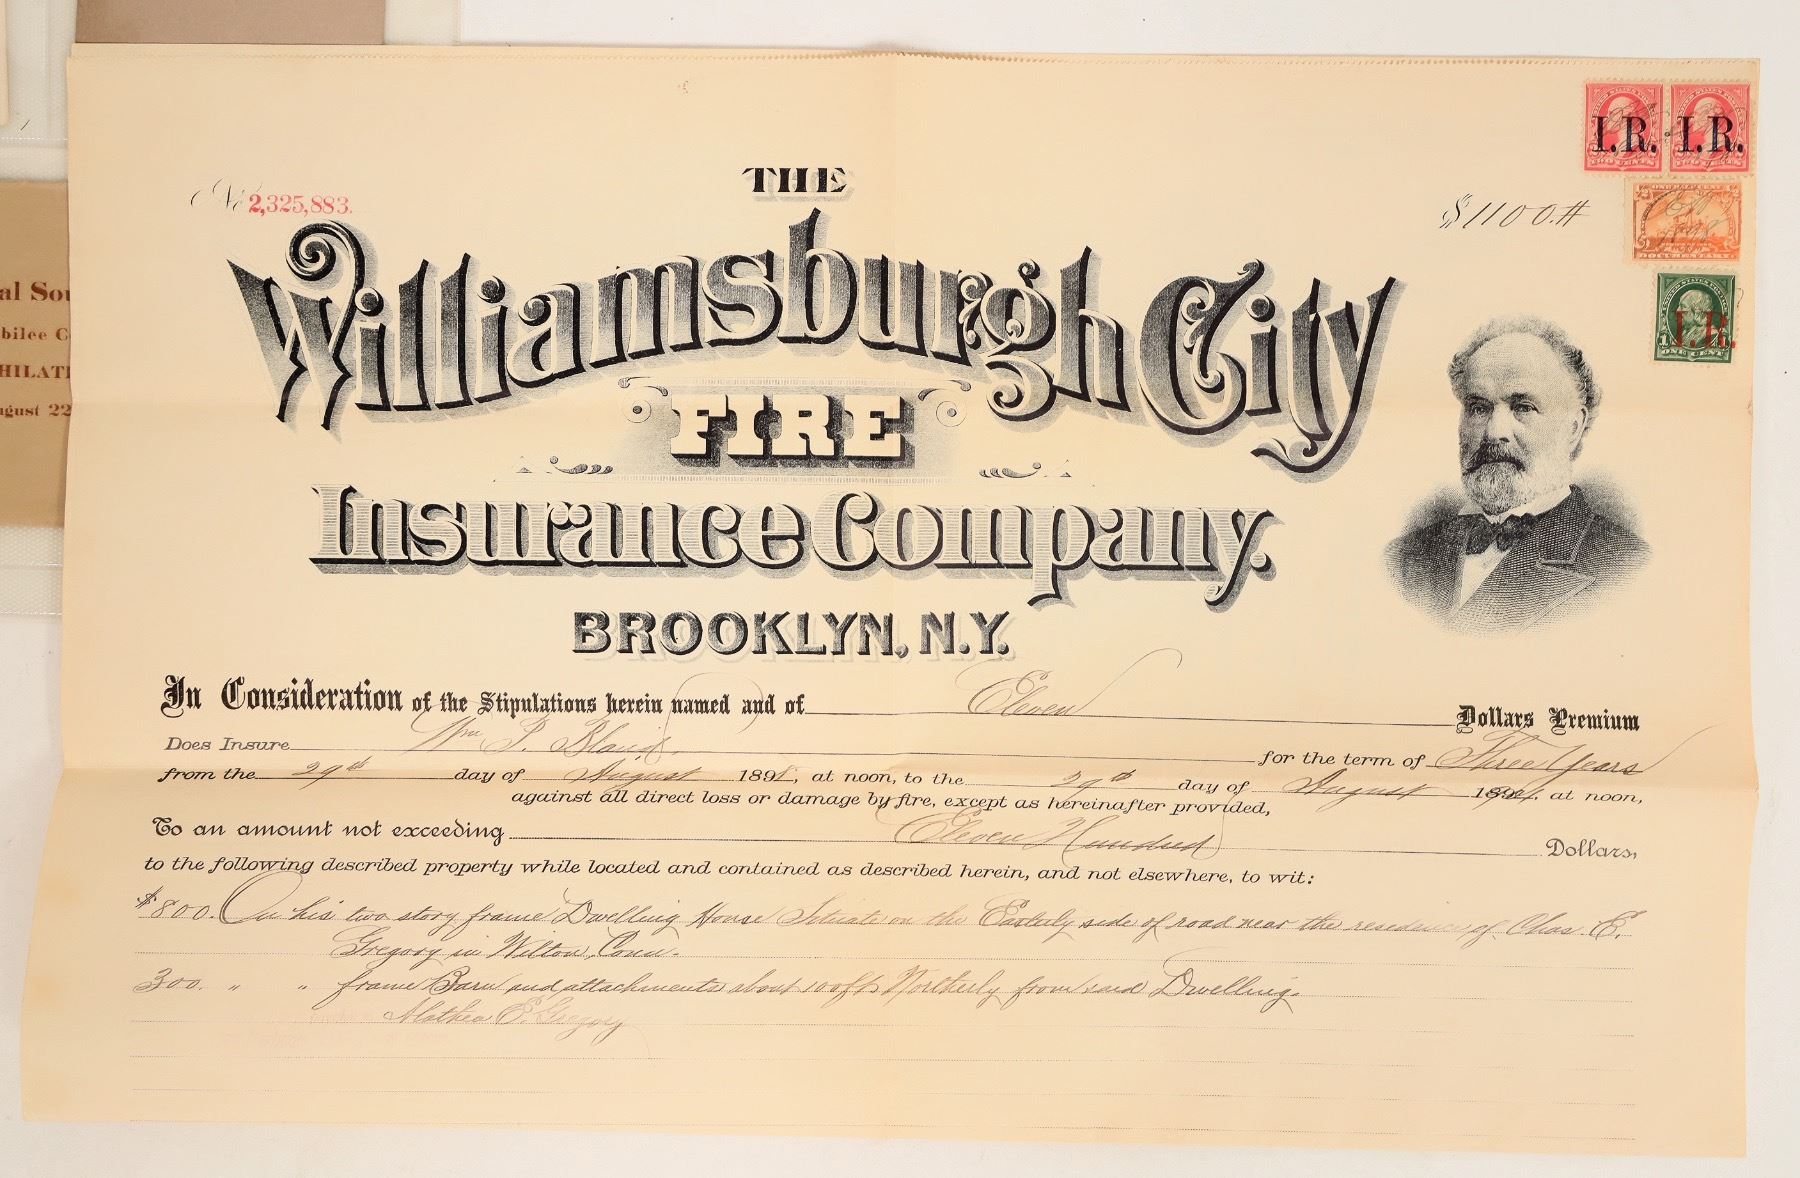 No 2,325,883.
THE
Williamsburgh City
FIRE
Insurance Company.
BROOKLYN, N.Y.
$1100.#
I.R. I.R.
I.R.
ONE CENT
In Consideration of the Stipulations herein named and of Eleven Dollars Premium
Does Insure Wm P. Bland. for the term of Three Years
from the 29th day of August 1898, at noon, to the 29th day of August at noon,
against all direct loss or damage by fire, except as hereinafter provided,
To an amount not exceeding Eleven Hundred Dollars,
to the following described property while located and contained as described herein, and not elsewhere, to wit:
$800. On his two story frame Dwelling House Situate on the Easterly side of road near the residence of Chas. E.
Gregory in Wilton, Conn.
300. " " frame Barn and attachments about 100 ft Northerly from said Dwelling.
E. Gregory
al Sou
bilee C
HILATE
ugust 22